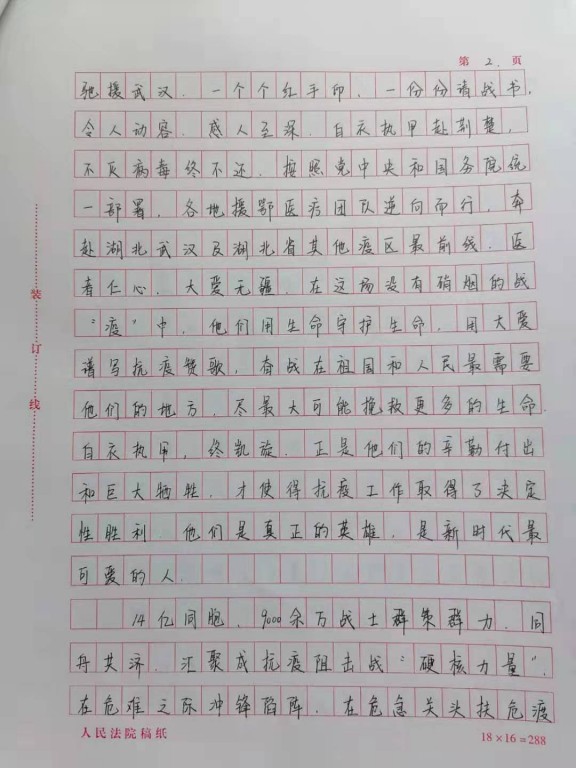 第 2 页
驰援武汉.一个个红手印,一份份请战书,
令人动容,感人至深.白衣执甲赴荆楚,
不灭病毒终不还.按照党中央和国务院统
一部署,各地援鄂医疗团队逆向而行,奔
赴湖北武汉及湖北省其他疫区最前线.医
者仁心,大爱无疆.在这场没有硝烟的战
“疫”中,他们用生命守护生命,用大爱
谱写抗疫赞歌,奋战在祖国和人民最需要
他们的地方,尽最大可能挽救更多的生命.
白衣执甲,终凯旋.正是他们的辛勤付出
和巨大牺牲,才使得抗疫工作取得了决定
性胜利.他们是真正的英雄,是新时代最
可爱的人.
14亿同胞,9000余万战士群策群力,同
舟共济,汇聚成抗疫阻击战“硬核力量”.
在危难之际冲锋陷阵,在危急关头扶危渡
装订线
人民法院稿纸
18×16=288